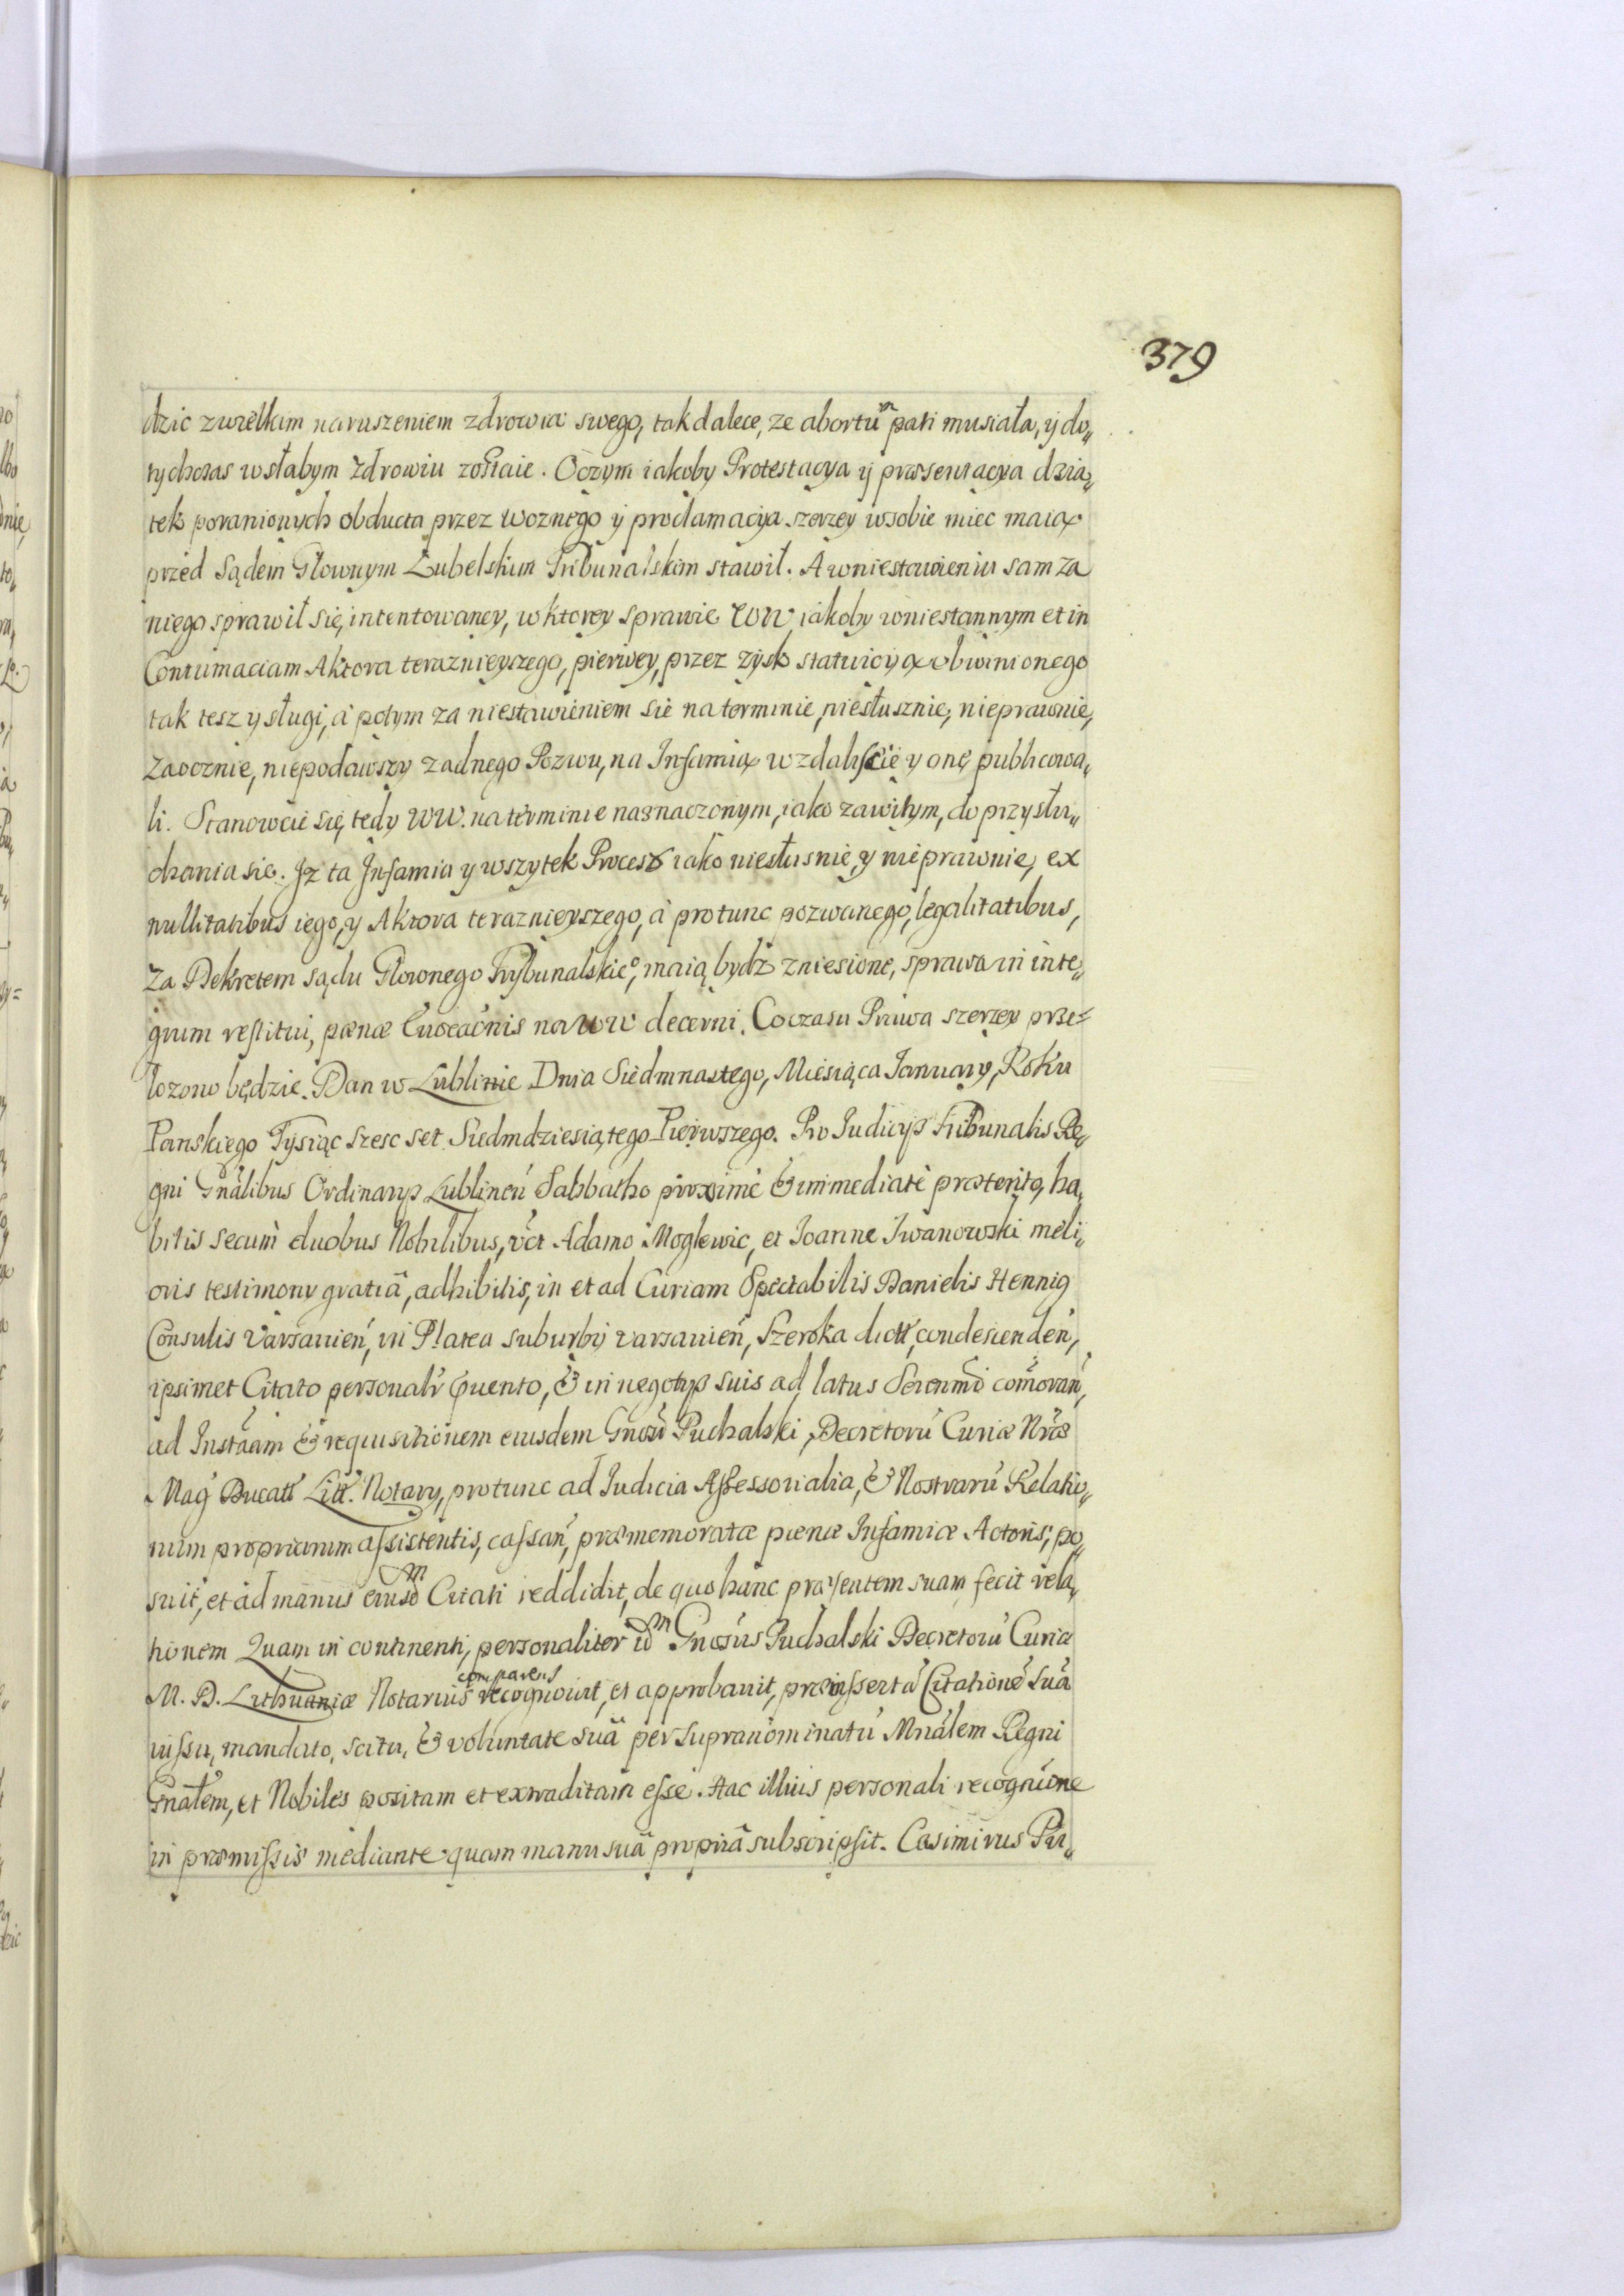 379
dzic zwielkim naruszeniem zdrowia swego, tak dalece, ze abortum pati musiała, ÿ do„
tychczas wsłabym zdrowiu zostaie. Oczym iakoby Protestacya ÿ præsentacya dzia„
tek poranionych obducta przez Woznego ÿ proclamacÿa szerzey wsobie miec maią
przed Sądem Głownym Lubelskim Tribunalskim stawił. A wniestawieniu sam za
niego sprawił się, intentowaney, w ktorey sprawie WW iakoby wniestannym et in
Contumaciam Aktora terazniejszego, pierwey, przez zysk statuicÿą obwinionego
tak tesz y sługi, à potym za niestawieniem sie na terminie, niesłusznie, nieprawnie,
Zaocznie, niepodawszy zadnego Pozwu, na Infamią wzdaliscie y onę publicowa„
li. Stanowcie się, tedy WW. na terminie naznaczonym, iako zawitym, do przysłu„
chania sie. Jz ta Infamia y wszytek Process iako niesłusnie, y nieprawnie, ex
nullitatibus iego, y Aktora teraznieyszego, à protunc pozwanego, legalitatibus,
Za Dekretem sądu Głownego Trÿbunalskieo, maią bydz zniesione, sprawa in inte„
grum restitui, pænæ na WW decerni. Co czasu Prawa szerzey prze=
lozono będzie. Dan w Lublinie Dnia Siedmnastego, Miesiąca Januarÿ, Roku
Panskiego Tysiąc szesc set Siedmdziesiątego Pierwszego. Pro Judicÿs Tribunalis Re„
gni Gnãlibus Ordinarÿs Lublineñ Sabbatho proxime & immediatè præterito, ha„
bitis secum duobus Nobilibus, vĉt Adamo Moglewic, et Joanne Jwanowski meli„
oris testimony gratiâ, adhibitis, in et ad Curiam Spectabilis Danielis Hennig
Consulis Varsavieñ, in Platea suburbÿ varsavieñ, Szeroka dictt, condescendeñ,
ipsimet Citato personalr̃ , & in negotÿs suis ad latus Serenm̃i com̃orañ,
ad Instãam & requisitionem eiusdem Gnosi Puchalski, Decretorũ Curiæ Nr̃æ
Mag Ducatt Litt. Notary, protunc ad Judicia Assessorialia, & Nostrarũ Relatio„
num propriarum assistentis, cassañ, præmemoratæ pænæ Infamiæ Actoris, po„
suit, et ad manus eiusdm Citati reddidit, de quo hanc præsentem suam fecit rela„
tionem Quam in continenti, personaliter idm Gnosus Puchalski Decretorũ Curiæ
M. D. Lithuaniæ Notarius comparens recognovit, et approbavit, præinssertã Citationẽ suã
iussu, mandato, scitu, & voluntate suâ per supranominatũ Mnãlem Regni
Gnãlem, et Nobiles positam et extraditam esse. Hac illius personali recognĩone
in præmissis mediante quam manu suâ propriâ subscripsit. Casimirus Pu„